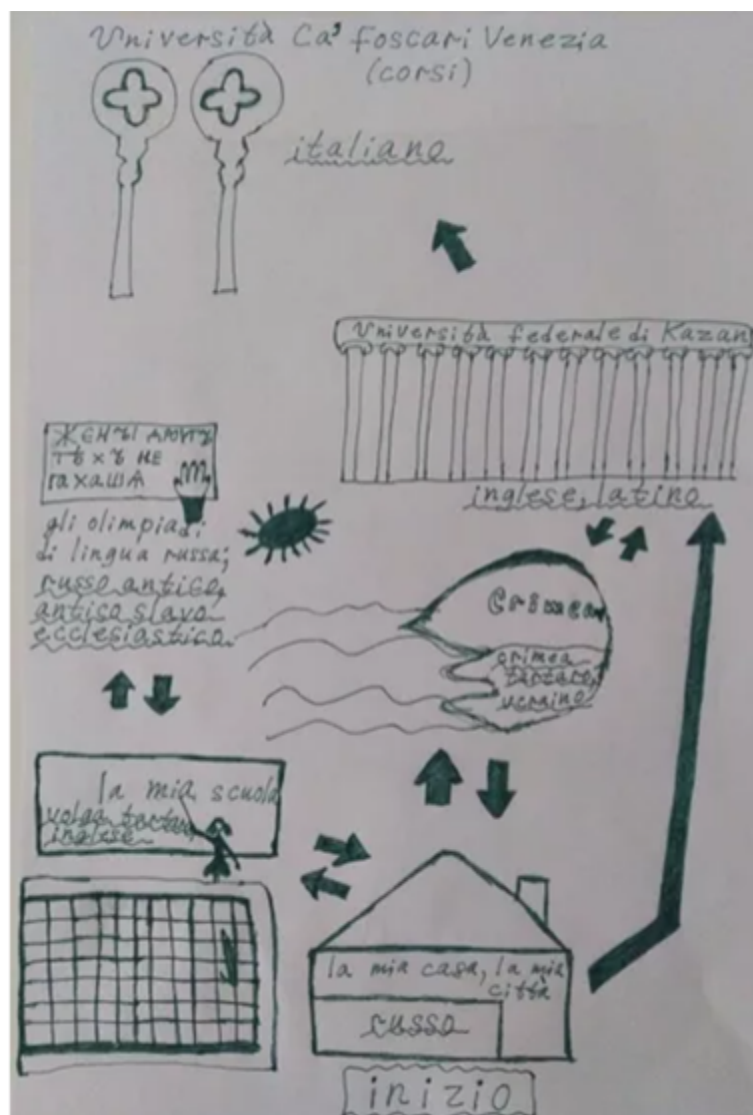 Università Ca' Foscari Venezia
(corsi)
italiano
Università federale di Kazan
inglese, latino
ЖЕНЪІ
ТѢХЪ НЕ
гли olimpiadi
di lingua russa;
russo antico,
antico slavo
ecclesiastico.
Crimea
crimea
tartaro,
ucraino
la mia scuola
volga tartaro,
inglese
la mia casa, la mia
città
russo
inizio